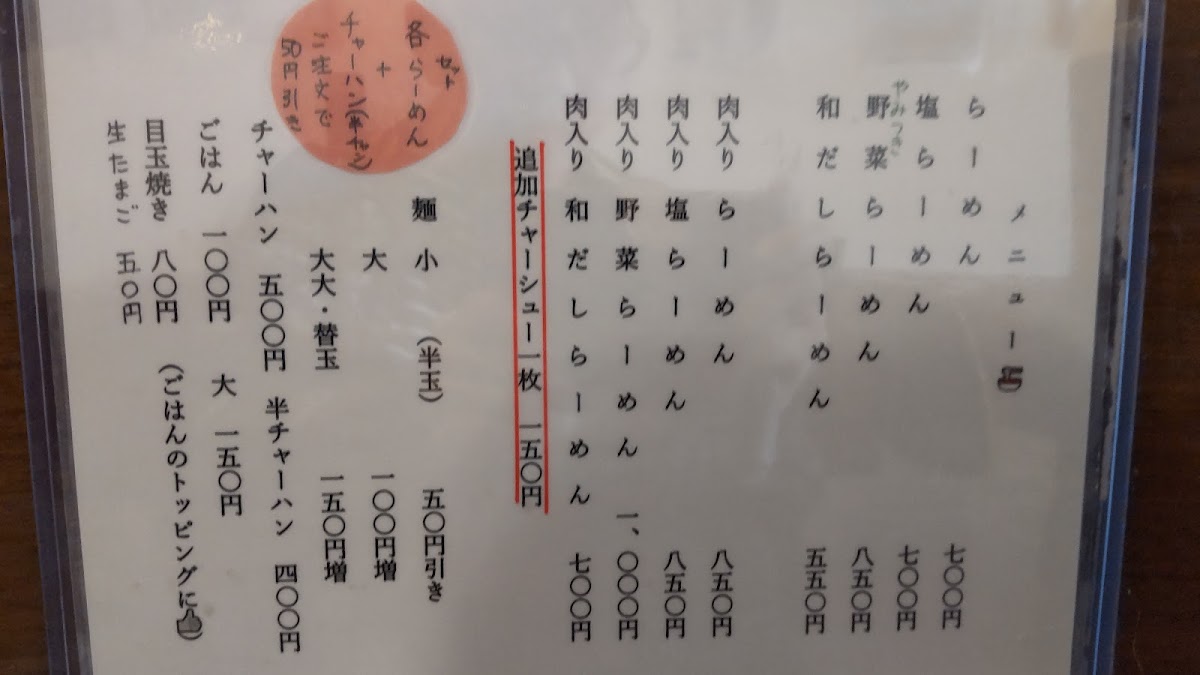 メニュー
らーめん 七〇〇円
塩らーめん 七〇〇円
やみつき
野菜らーめん 八五〇円
和だしらーめん 五五〇円
肉入り らーめん 八五〇円
肉入り 塩らーめん 八五〇円
肉入り 野菜らーめん 一、〇〇〇円
肉入り 和だしらーめん 七〇〇円
追加チャーシュー一枚 一五〇円
セット
各らーめん
+
チャーハン(半チャン)
ご注文で
50円引き
麺 小 (半玉) 五〇円引き
大 一〇〇円増
大大・替玉 一五〇円増
チャーハン 五〇〇円 半チャーハン 四〇〇円
ごはん 一〇〇円 大 一五〇円
目玉焼き 八〇円 (ごはんのトッピングに👍)
生たまご 五〇円